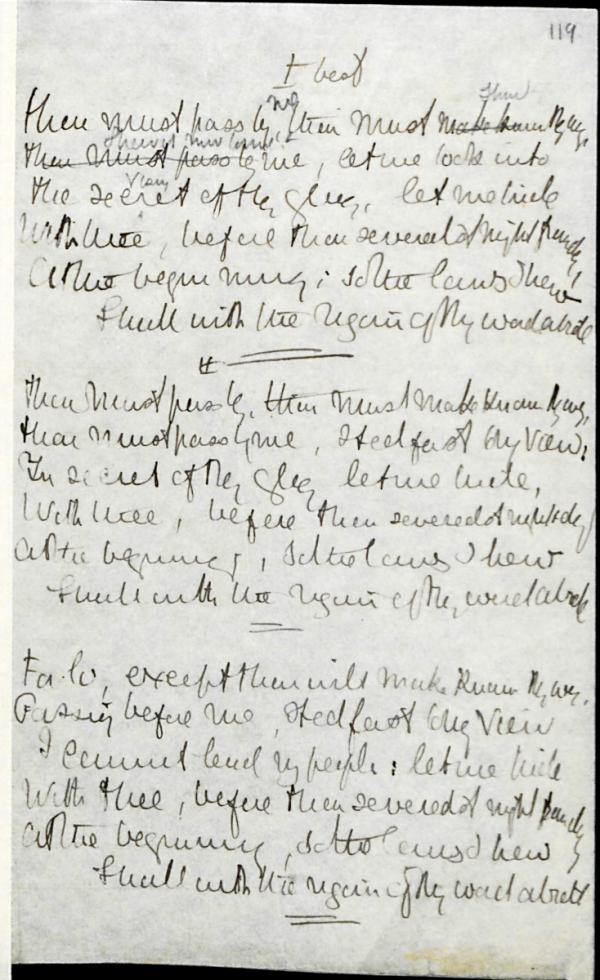 119
I best
Thou must pass by, thou must make known thy way,
thou must pass by me, let me look into
the secret of thy glory, let me hide
With thee, before thou severedst night from day,
At the beginning; so the laws I hew
Shall with the of thy word abide
II
Thou must pass by, thou must make known thy way,
thou must pass by me, stedfast to my view;
In secret of thy glory let me hide,
With thee, before thou severedst night & day
at the beginning, so the laws I hew
Shall with the of thy word abide
For lo, except thou wilt make known thy way,
Passing before me, stedfast to my view
I cannot lead thy people: let me hide
With thee, before thou severedst night from day
At the beginning, so the laws I hew
Shall with the of thy word abide